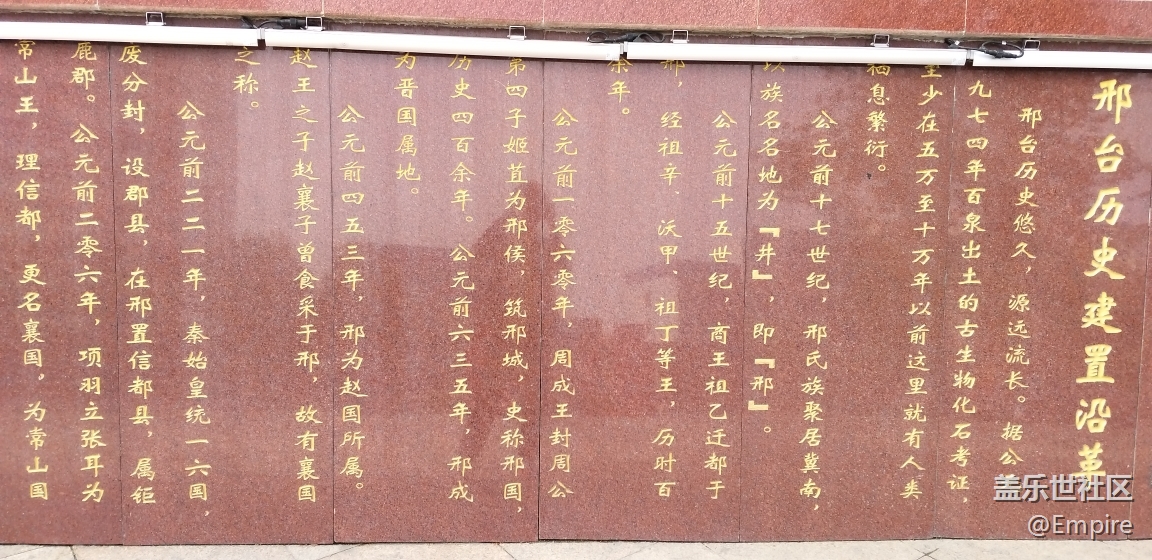 邢台历史建置沿革
邢台历史悠久，源远流长。据公
九七四年百泉出土的古生物化石考证，
至少在五万至十万年以前这里就有人类
栖息繁衍。
公元前十七世纪，邢氏族聚居冀南，
以族名名地为『井』，即『邢』。
公元前十五世纪，商王祖乙迁都于
邢，经祖辛、沃甲、祖丁等王，历时百
余年。
公元前一零六零年，周成王封周公
第四子姬苴为邢侯，筑邢城，史称邢国，
历史四百余年。公元前六三五年，邢成
为晋国属地。
公元前四五三年，邢为赵国所属。
赵王之子赵襄子曾食采于邢，故有襄国
之称。
公元前二二一年，秦始皇统一六国，
废分封，设郡县，在邢置信都县，属钜
鹿郡。公元前二零六年，项羽立张耳为
常山王，理信都，更名襄国，为常山国
盖乐世社区
@Empire